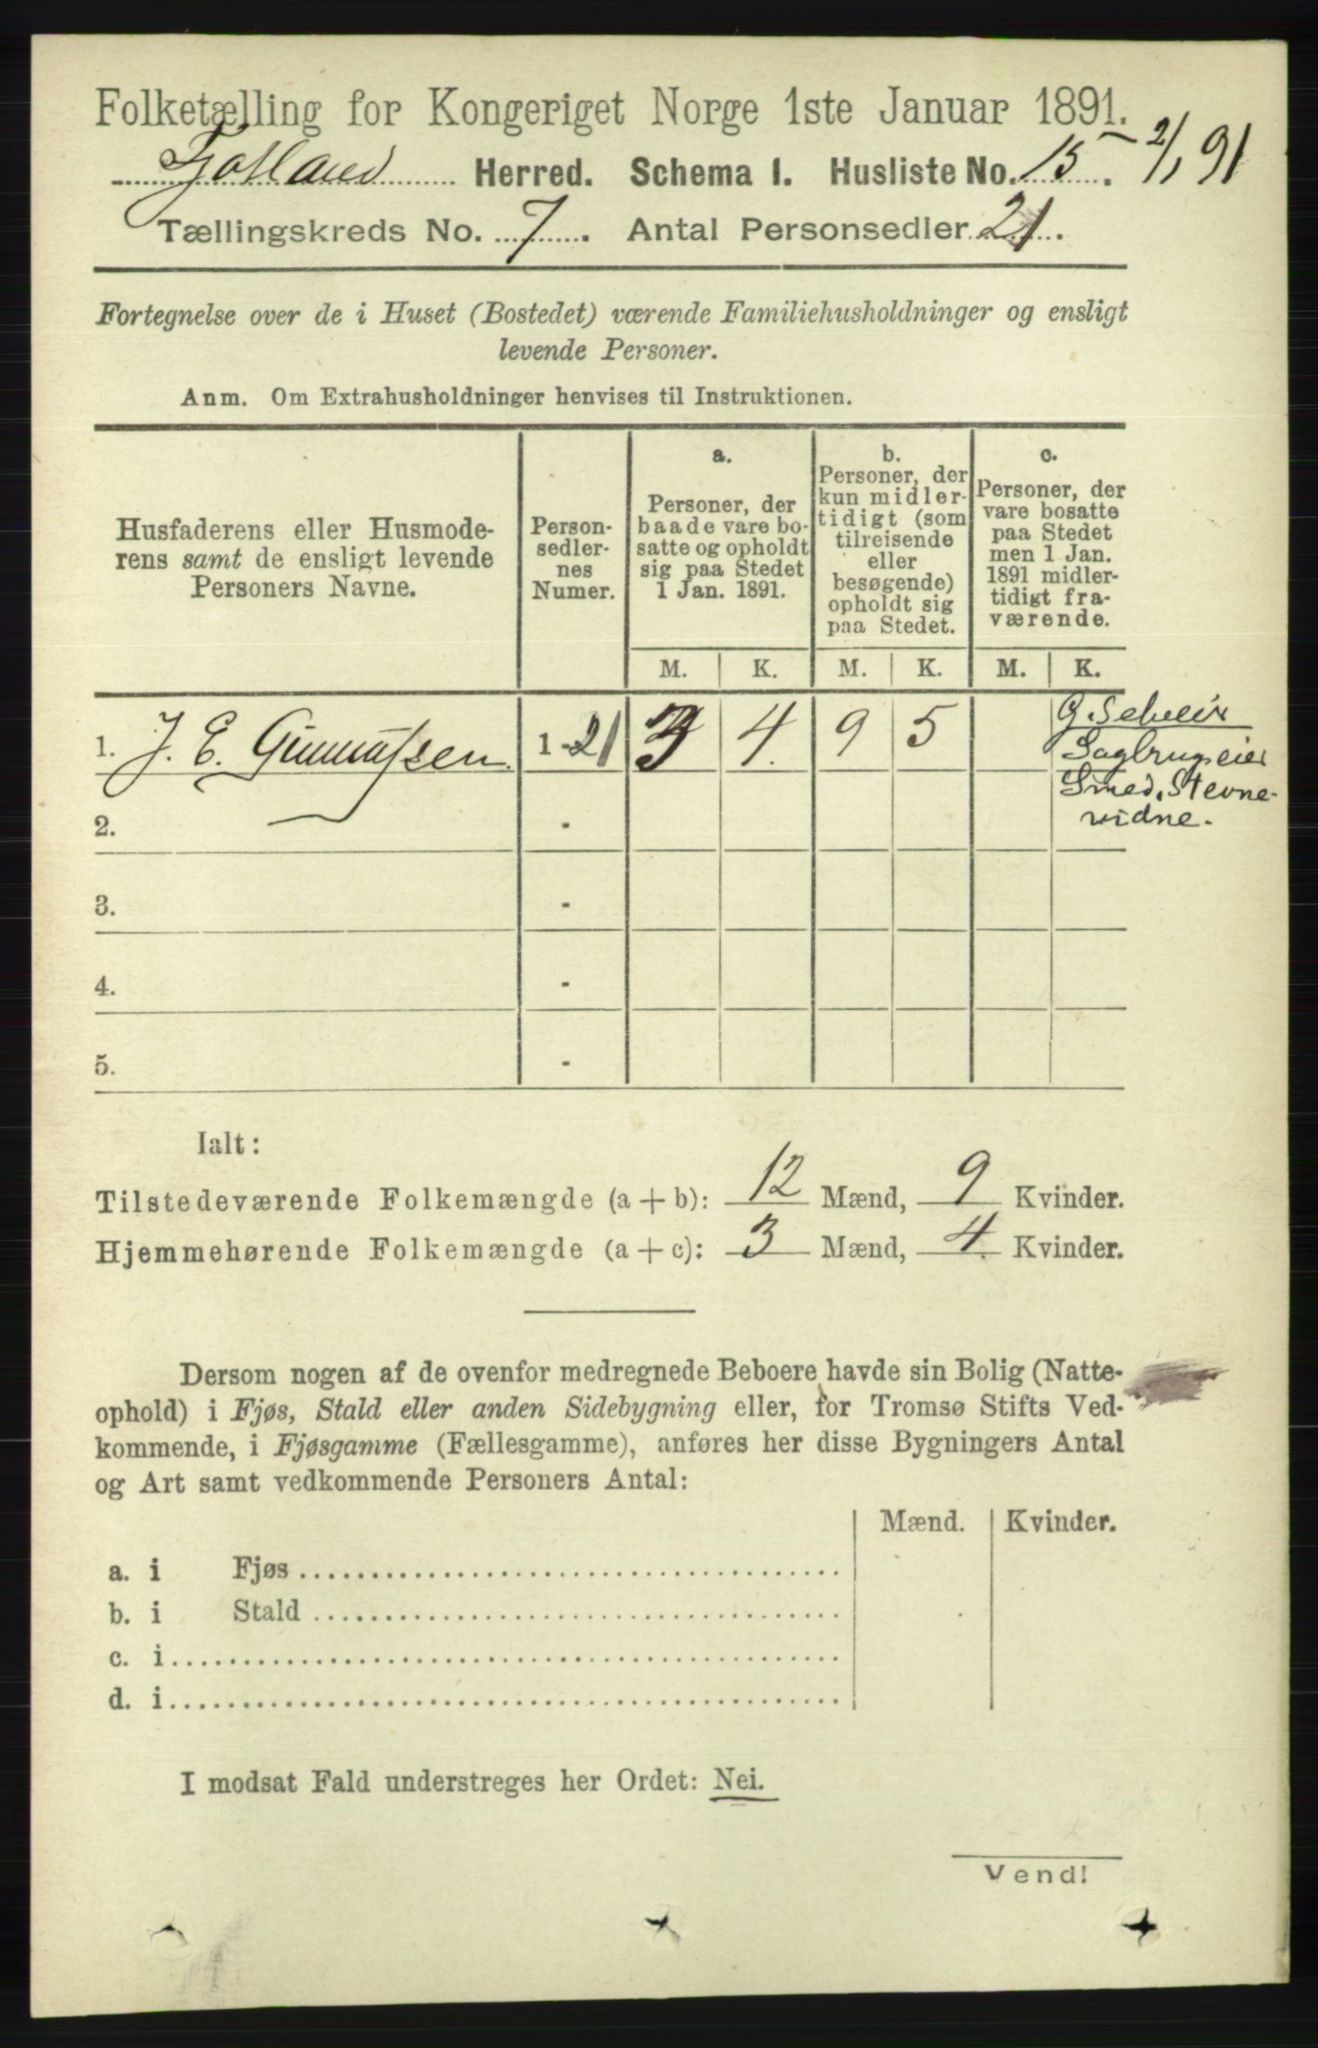 Folketælling for Kongeriget Norge 1ste Januar 1891.
Fjotland Herred. Schema 1. Husliste No. 15. 2/1 91
Tællingskreds No. 7. Antal Personsedler 21.
Fortegnelse over de i Huset (Bostedet) værende Familiehusholdninger og ensligt
levende Personer.
Anm. Om Extrahusholdninger henvises til Instruktionen.
Husfaderens eller Husmode-
rens samt de ensligt levende
Personers Navne.
Person-
sedler-
nes
Numer.
a.
Personer, der
baade vare bo-
satte og opholdt
sig paa Stedet
1 Jan. 1891.
b.
Personer, der
kun midler-
tidigt (som
tilreisende
eller
besøgende)
opholdt sig
paa Stedet.
c.
Personer, der
vare bosatte
paa Stedet
men 1 Jan.
1891 midler-
tidigt fra-
værende.
M. K. M. K. M. K.
1. J. E. Gunnufsen 1-21 3 4. 9 5
G. Selveier
Sagbrugseier
Smed, Stevne-
vidne.
2. -
3. -
4. -
5. -
Ialt:
Tilstedeværende Folkemængde (a + b): 12 Mænd, 9 Kvinder.
Hjemmehørende Folkemængde (a + c): 3 Mænd, 4. Kvinder.
Dersom nogen af de ovenfor medregnede Beboere havde sin Bolig (Natte-
ophold) i Fjøs, Stald eller anden Sidebygning eller, for Tromsø Stifts Ved-
kommende, i Fjøsgamme (Fællesgamme), anføres her disse Bygningers Antal
og Art samt vedkommende Personers Antal:
Mænd. Kvinder.
a. i Fjøs
b. i Stald
c. i
d. i
I modsat Fald understreges her Ordet: Nei.
Vend!